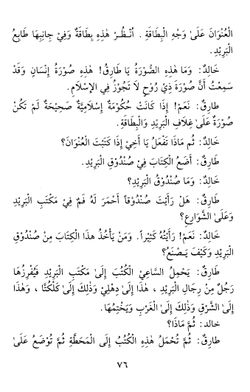 الْعُنْوَانَ عَلَىٰ وَجْهِ الْبِطَاقَةِ . اُنْظُرْ هٰذِهِ بِطَاقَةٌ وَفِيْ جَانِبِهَا طَابِعُ
الْبَرِيْدِ.
خَالِدٌ: وَمَا هٰذِهِ الصُّوْرَةُ يَا طَارِقُ! هٰذِهِ صُوْرَةُ إِنْسَانٍ وَقَدْ
سَمِعْتُ أَنَّ صُوْرَةَ ذِيْ رُوْحٍ لَا تَجُوْزُ فِي الْإِسْلَامِ.
طَارِقٌ: نَعَمْ! إِذَا كَانَتْ حُكُوْمَةٌ إِسْلَامِيَّةٌ صَحِيْحَةٌ لَمْ تَكُنْ
صُوْرَةٌ عَلَىٰ غِلَافِ الْبَرِيْدِ وَالْبِطَاقَةِ.
خَالِدٌ: ثُمَّ مَاذَا تَفْعَلُ يَا أَخِيْ إِذَا كَتَبْتَ الْعُنْوَانَ؟
طَارِقٌ: أَضَعُ الْكِتَابَ فِيْ صُنْدُوْقِ الْبَرِيْدِ.
خَالِدٌ: وَمَا صُنْدُوْقُ الْبَرِيْدِ؟
طَارِقٌ: هَلْ رَأَيْتَ صُنْدُوْقاً أَحْمَرَ لَهُ فَمٌ فِيْ مَكْتَبِ الْبَرِيْدِ
وَعَلَى الشَّوَارِعِ؟
خَالِدٌ: نَعَمْ! رَأَيْتُهُ كَثِيْراً. وَمَنْ يَأْخُذُ هٰذَا الْكِتَابَ مِنْ صُنْدُوْقِ
الْبَرِيْدِ وَكَيْفَ يَصْنَعُ؟
طَارِقٌ: يَحْمِلُ السَّاعِيْ الْكُتُبَ إِلَىٰ مَكْتَبِ الْبَرِيْدِ فَيُفْرِزُهَا
رَجُلٌ مِنْ رِجَالِ الْبَرِيْدِ ، هٰذَا إِلَىٰ دِهْلِيْ وَذٰلِكَ إِلَىٰ كَلْكُتَّا ، وَهٰذَا
إِلَى الشَّرْقِ وَذٰلِكَ إِلَى الْغَرْبِ وَيَخْتِمُهَا.
خالد: ثُمَّ مَاذَا؟
طَارِقٌ: ثُمَّ تُحْمَلُ هٰذِهِ الْكُتُبُ إِلَى الْمَحَطَّةِ ثُمَّ تُوْضَعُ عَلَىٰ
٧٦